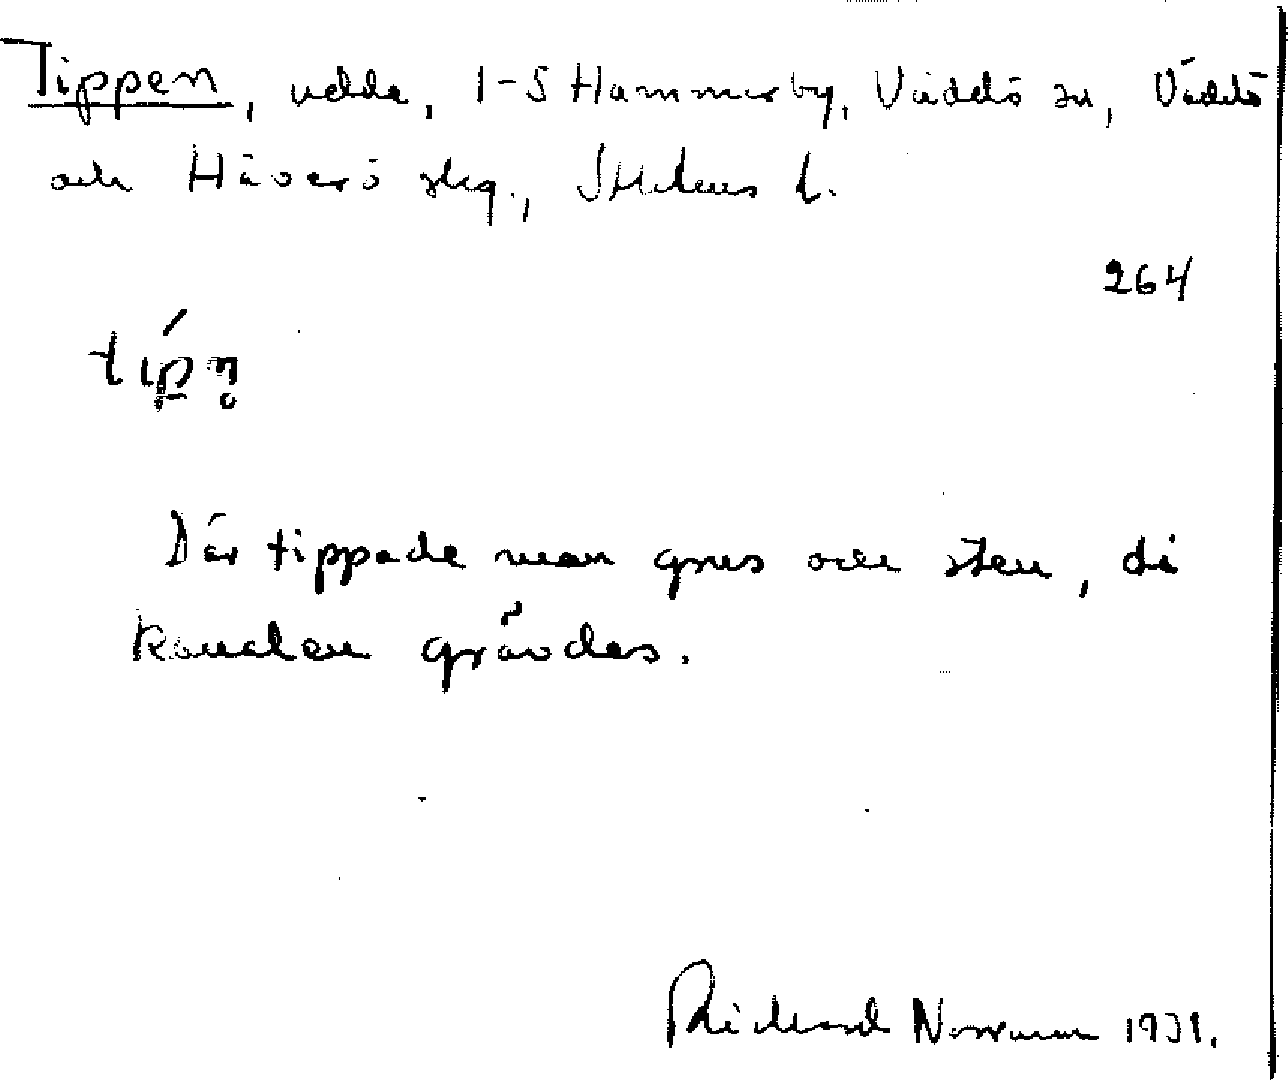 Tippen, udde, 1-5 Hammarby, Väddö sn, Väddö
och Häverö skg., Sthlms l.
264
típn̥
Där tippade man grus och sten, då
kanalen grävdes.
Richard Norrman 1931.